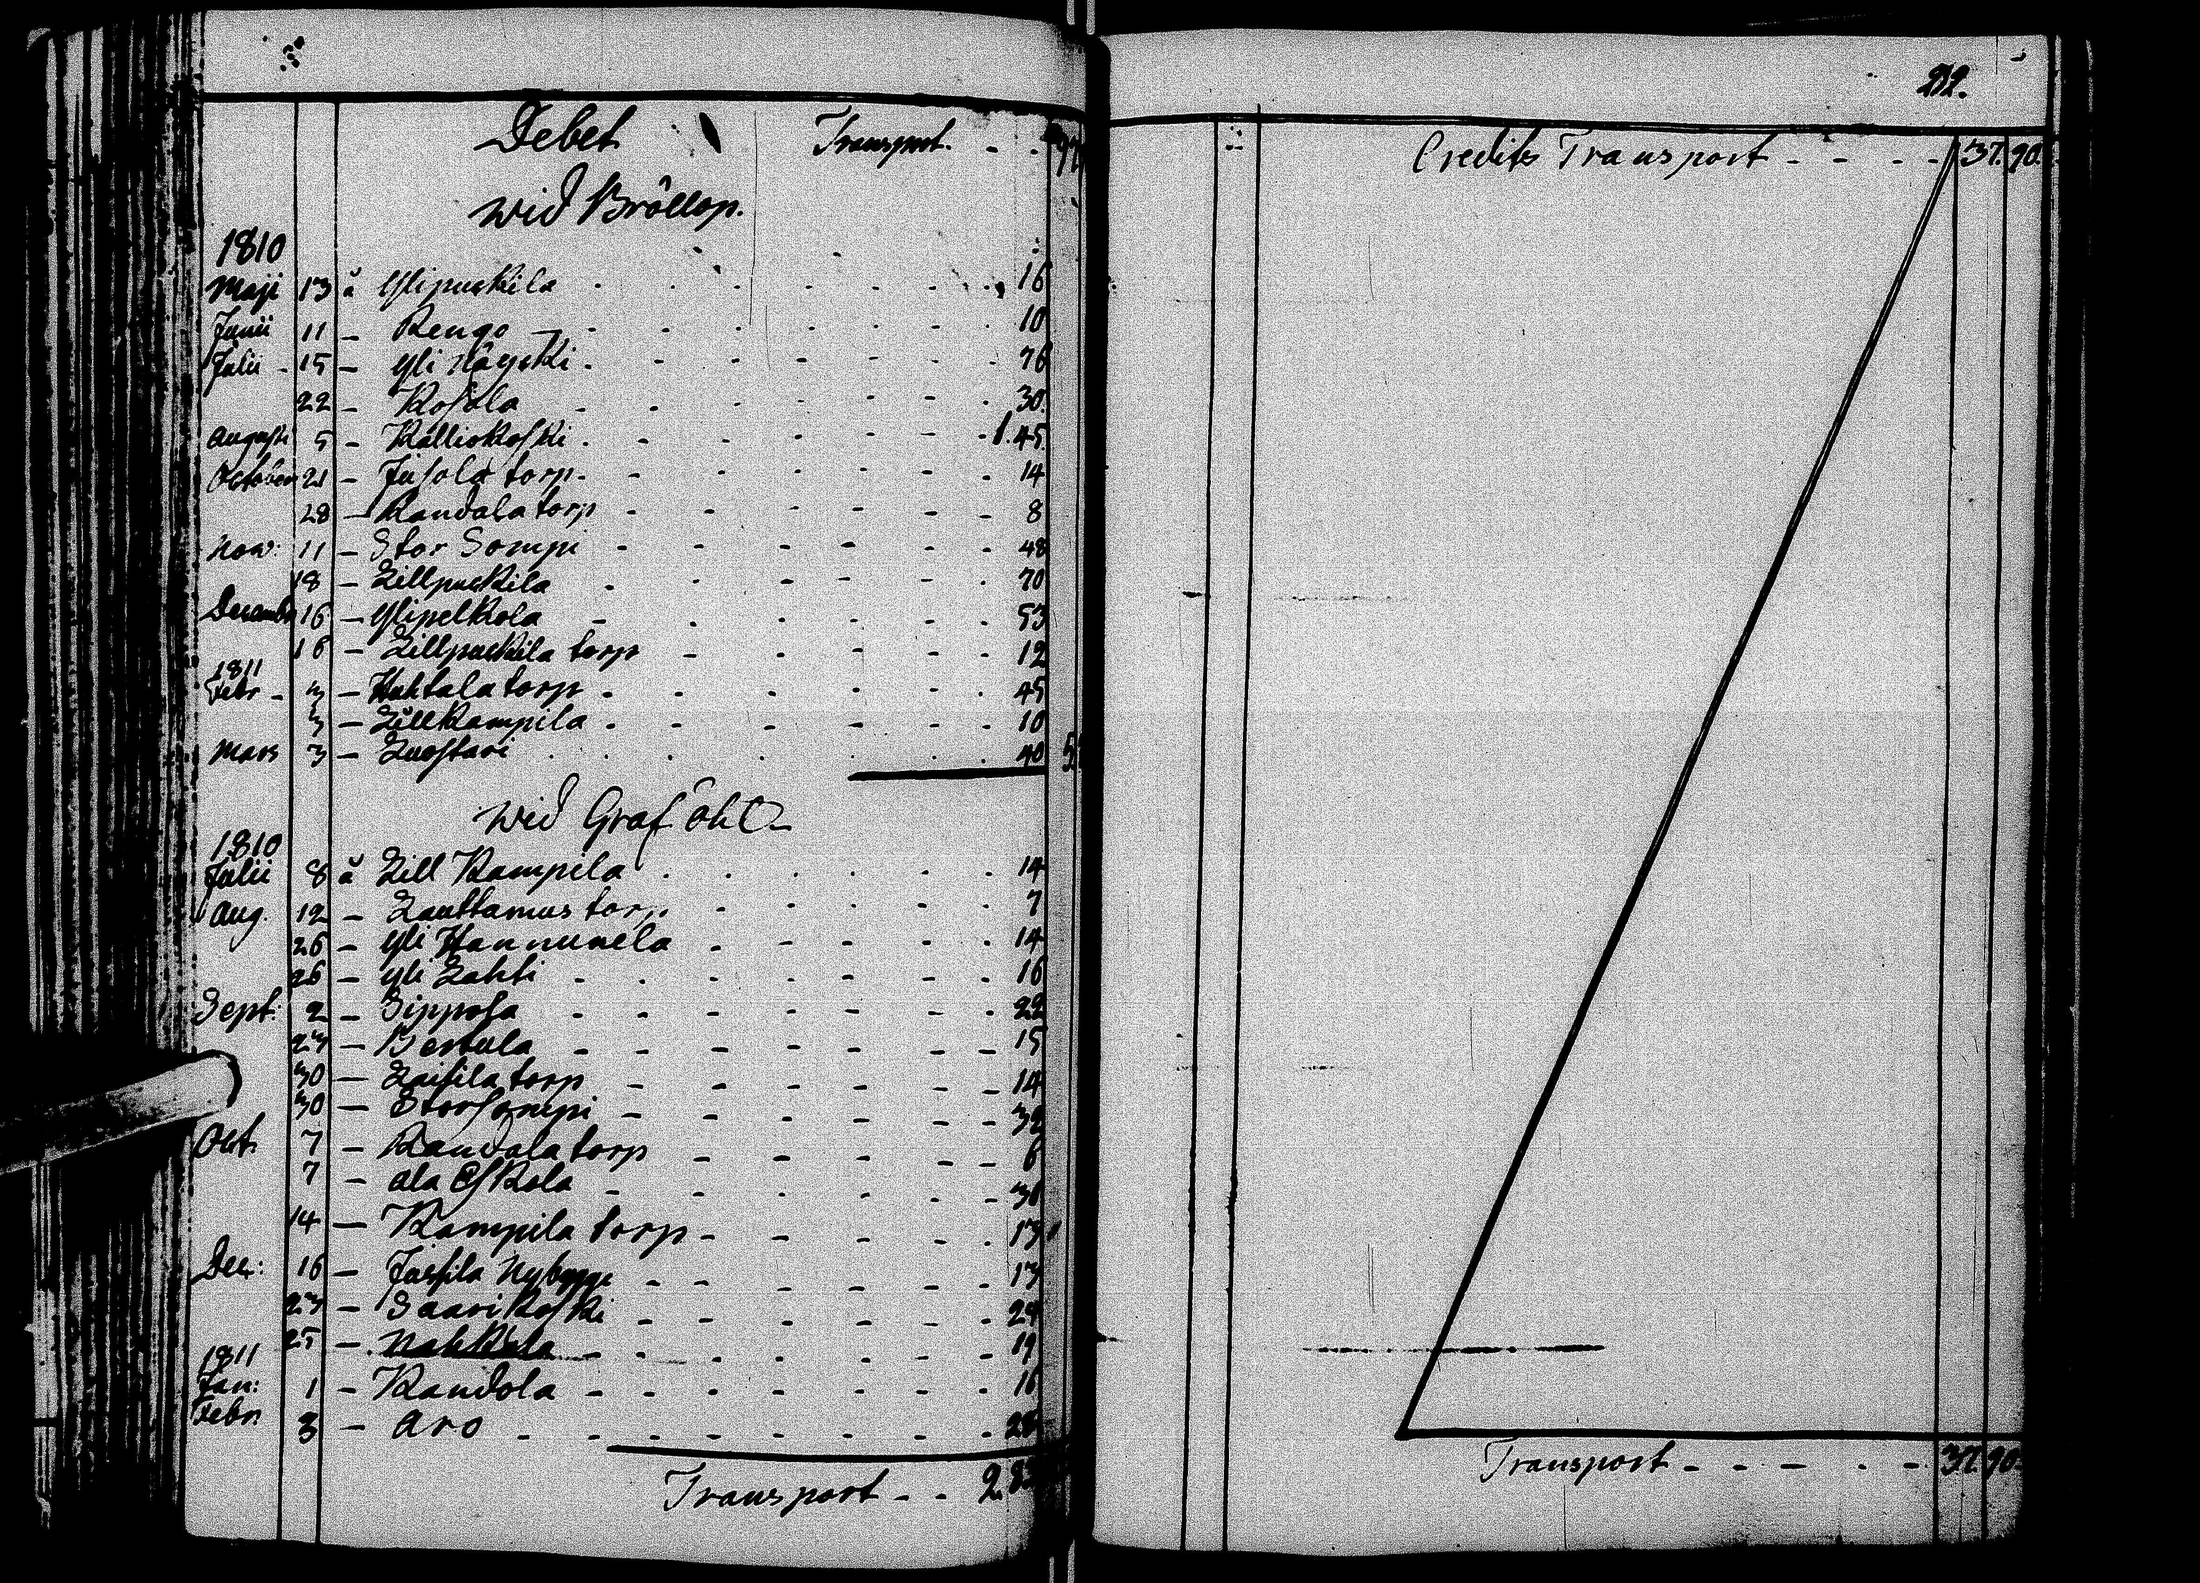 Debet Transport. - - 97
wid Bröllop.
1810
Maji 13 å Ylipuckila 16
Junii 11 - Rengo 10
Julii - 15 - Yli Näycki 76
22 - Kosola 30.
Augusti 5 - Kalliokoski 1.45
October 21 - Jusola torp 14
28 - Raudala torp 8
Now: 11 - Stor Sompi 48
18 - Lillpuckila 70
Decemb. 16 - Ylipelkola 53
16 - Lillpuckila torp 12
1811
Febr - 3 - Huhtala torp 45
3 - Lillkampila 10
Mars 3 - Luostari 40
wid Graföhl
1810
Julii 8 å Lill Kampila 14
Aug. 12 - Lauttamus torp. 7
26 - Yli Hannunela 14
26 - Yli Lahti 16
Sept: 2 - Sippola 22
23 - Bertula 15
30 - Laisila torp 14
30 - Storsompi 32
Oct. 7 - Raudala torp 6
7 - Ala Eskola 31
14 - Kampila torp 13
Dec: 16 - Jassila Nybygge 13
23 - Saarikoski 24
25 - Nahkala 19
1811
Jan: 1 - Raudola 16
Febr. 3 - Aro 28
Transport - - 2.83
22.
Credits Transport - - - - 37. 90.
Transport - - - - - 37. 90.